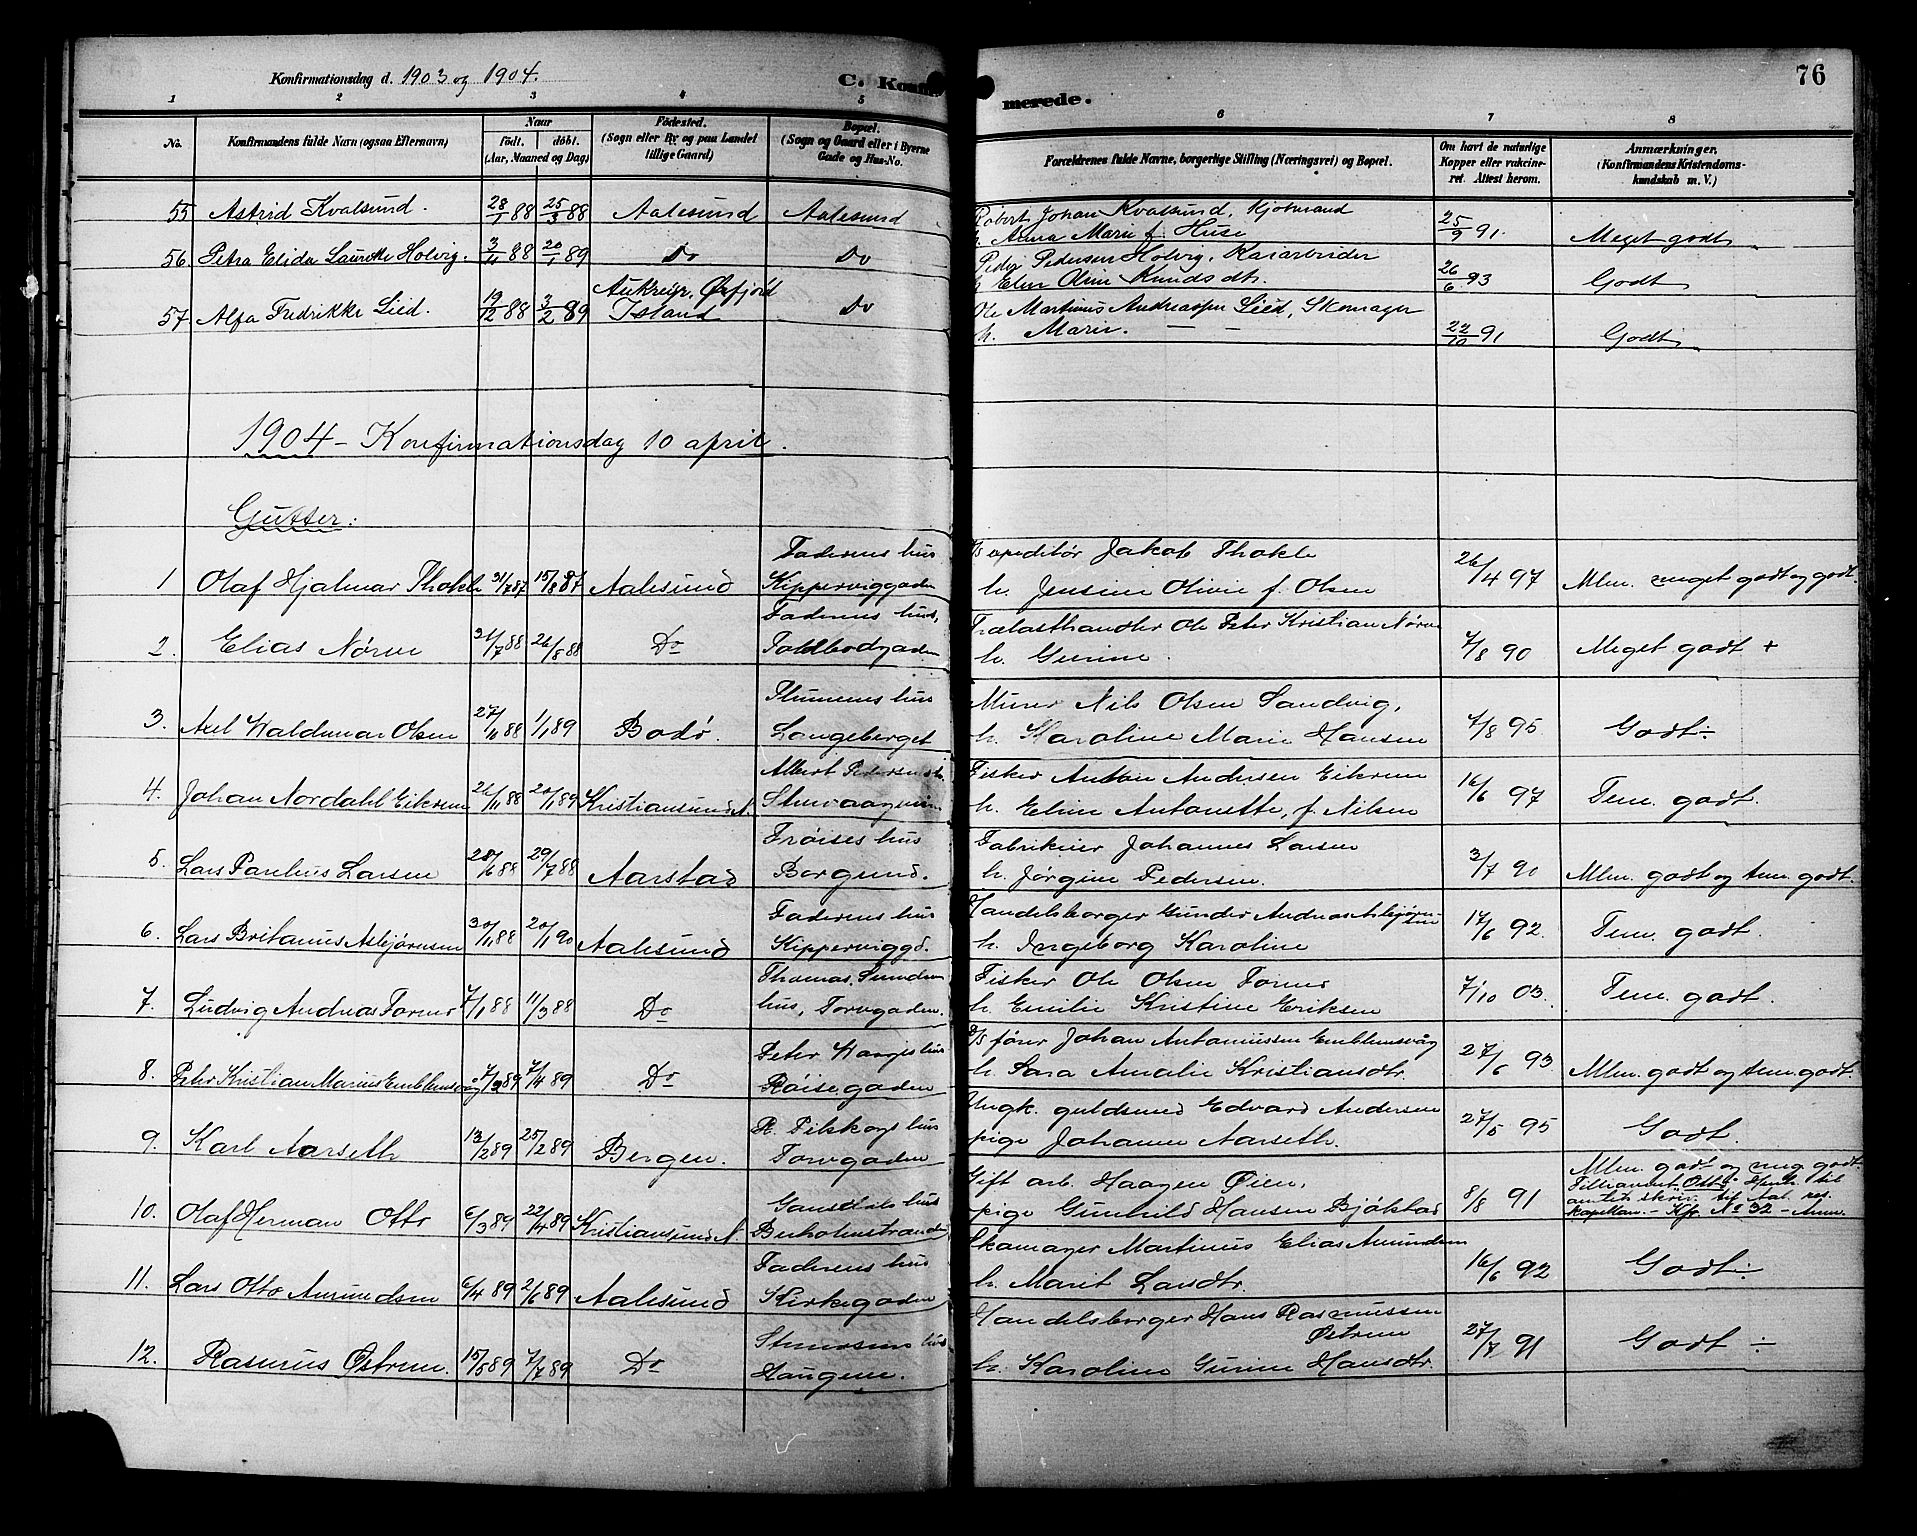 Konfirmationsdag d. 1903 og 1904.
C. Konfir
merede.
76
1 2 3 4 5 6 7 8
No.
Konfirmandens fulde Navn (ogsaa Efternavn)
Naar
født. døbt.
(Aar, Maaned og Dag)
Fødested.
(Sogn eller By og paa Landet
tillige Gaard)
Bopæl.
(Sogn og Gaard eller i Byerne
Gade og Hus-No.
Forældrenes fulde Navne, borgerlige Stilling (Næringsvei) og Bopæl.
Om havt de naturlige
Kopper eller vakcine-
ret. Attest herom.
Anmærkninger.
(Konfirmandens Kristendoms-
kundskab m. V.)
55 Astrid Kvalsund. 28/1 88 25/3 88 Aalesund Aalesund Robert Johan Kvalsund,
h. Anna Marie f. Huse 25/9 91. Meget godt
56. Petra Elida Laurette Holvig. 3/11 88 20/1 89 Do Do Peder Pedersen Holvig, Kaiarbeider
h. Eline Knudsdtr. 26/6 93 Godt
57. Alfa Fredrikke Lied. 19/12 88 3/2 89 Island Do Ole Martinus Andreassen Lied, Skomager
h. Marie. — — 22/10 91 Godt
1904 - Konfirmationsdag 10 april.
Gutter:
1 Olaf Hjalmar Thokle 31/7 87 15/8 87 Aalesund Faderens hus Kipperviggaden Expeditør Jakob Thokle
h. Jensine Olivie f. Olsen 26/4 97 Mlm. meget godt og godt
2. Elias Nørve 21/7 88 26/8 88 Do Faderens hus, Toldbodgaden Trælasthandler Ole Peter Kristian Nørve
h. Gurine. 7/8 90 Meget godt +
3. Axel Waldemar Olsen 27/11 88 1/1 89 Bodø. hus Langeberget Murer Nils Olsen Sandvig,
h. Karoline Marie Hansen 7/8 95. Godt ÷
4. Johan Nordahl Eikrem 21/11 88 20/1 89 Kristiansund N. Albert Pedersens h. Fisker Anton Andersen Eikrem
h. Eline Antonette, f. Nilsen 16/6 97 Tem. godt.
5. Lars Larsen 28/6 88 29/7 88 Aarstad Frøises hus Borgund. Fabrikeier Johannes Larsen
h. Jørgine Pedersen. 3/7 90 Mlm. godt og tem. godt.
6. Lars Britanus Asbjørnsen 30/11 88 20/1 90 Aalesund Faderens hus Kipperviggd. Handelsborger Gunder Andreas Asbjørnsen
h. Ingeborg Karoline 17/6 92. Tem. godt.
7. Ludvig Andreas 7/1 88 11/3 88 Do Thomas hus, Torvgaden. Fisker Ole Olsen
h. Emilie Kristine Eriksen 7/10 03. Tem. godt.
8. Peter Kristian Marius Emblemsvåg 7/3 89 7/4 89 Do Peter hus Røisegaden D/S fører Johan Antoniussen Emblemsvåg
h. Sara Amalie Kristiansdtr. 27/6 93 Mlm. godt og tem. godt.
9. Karl Aarseth 13/2 89 25/2 89 Bergen. hus Torvgaden Ungk. guldsmed Edvard Andersen
pige Johanne Aarseth. 27/5 95 Godt.
10. Olaf Herman Otto 6/3 89 22/4 89 Kristiansund N. hus Gift arb. Haagen Øien,
pige Gunhild Hansen Bjøkstad 8/8 91 Mlm. godt og meg. godt.
Kfr. No 32 - Anm.
11. Lars Otto Amundsen 6/4 89 2/6 89 Aalesund Faderens hus Kirkegaden Skomager Martinus Elias Amundsen
h. Marit Larsdtr. 16/6 92 Godt ÷
12. Rasmus Østrem. 15/5 89 7/7 89 Do hus Haugene. Handelsborger Hans Rasmussen
Østrem
h. Karoline Gurine Hansdtr. 27/7 91 Godt ÷